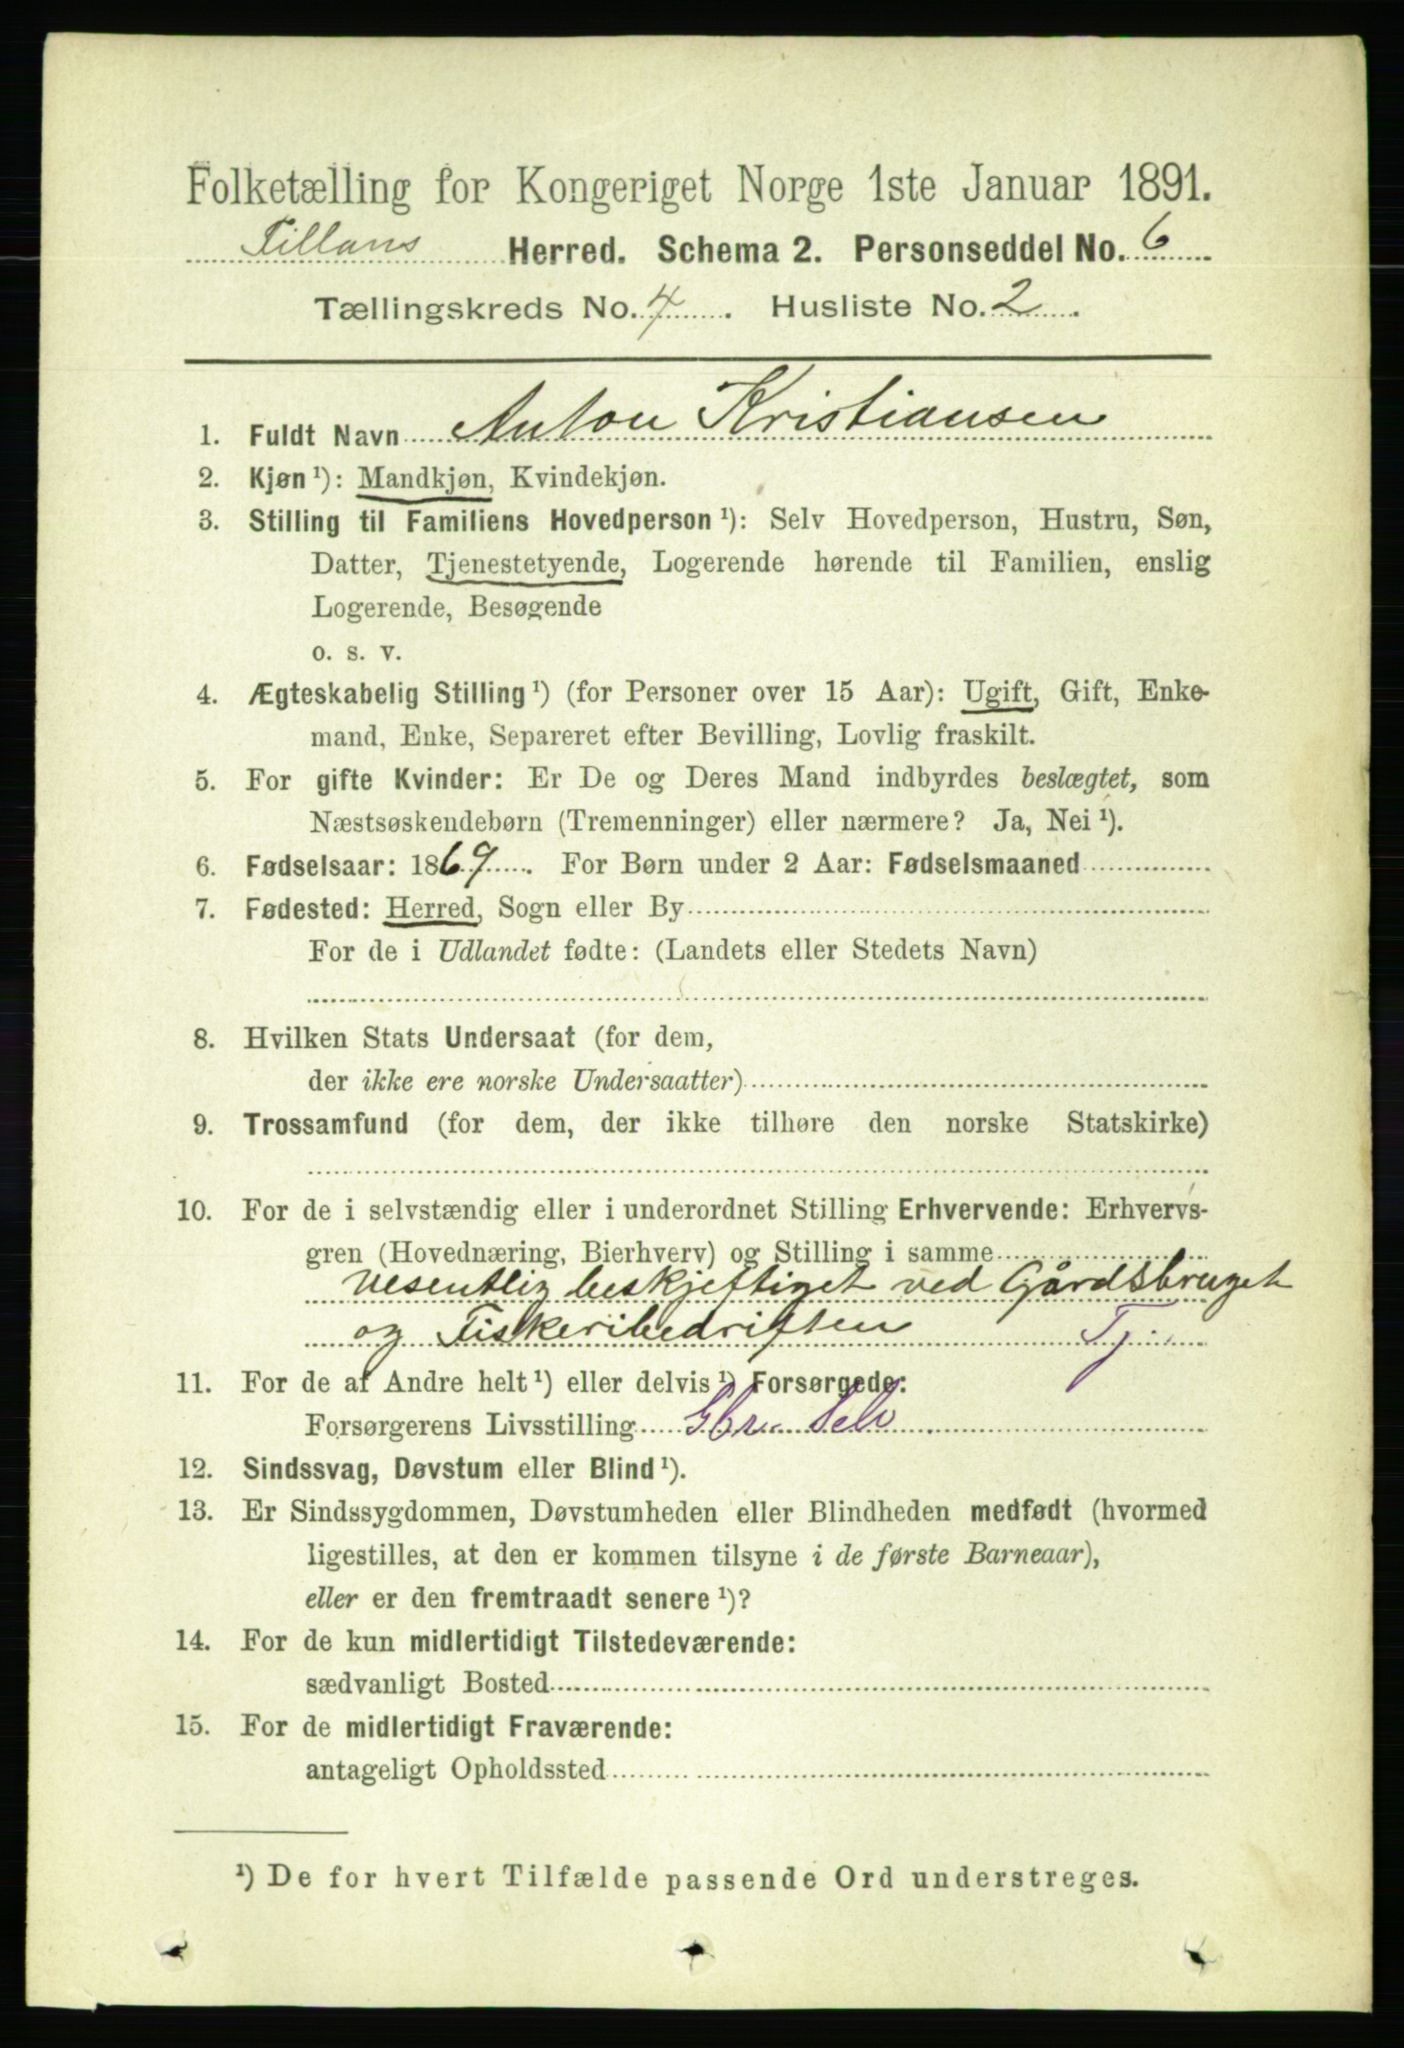 Folketælling for Kongeriget Norge 1ste Januar 1891.
Fillans Herred. Schema 2. Personseddel No. 6
Tællingskreds No. 4. Husliste No. 2.
1. Fuldt Navn Anton Kristiansen
2. Kjøn¹): Mandkjøn, Kvindekjøn.
3. Stilling til Familiens Hovedperson¹): Selv Hovedperson, Hustru, Søn,
Datter, Tjenestetyende, Logerende hørende til Familien, enslig
Logerende, Besøgende
o. s. v.
4. Ægteskabelig Stilling¹) (for Personer over 15 Aar): Ugift, Gift, Enke-
mand, Enke, Separeret efter Bevilling, Lovlig fraskilt.
5. For gifte Kvinder: Er De og Deres Mand indbyrdes beslægtet, som
Næstsøskendebørn (Tremenninger) eller nærmere? Ja, Nei¹).
6. Fødselsaar: 1869. For Børn under 2 Aar: Fødselsmaaned
7. Fødested: Herred, Sogn eller By
For de i Udlandet fødte: (Landets eller Stedets Navn)
8. Hvilken Stats Undersaat (for dem,
der ikke ere norske Undersaatter)
9. Trossamfund (for dem, der ikke tilhøre den norske Statskirke)
10. For de i selvstændig eller i underordnet Stilling Erhvervende: Erhvervs-
gren (Hovednæring, Bierhverv) og Stilling i samme
vesentlig beskjeftiget ved Gårdsbruget
og Fiskeribedriften Tj.
11. For de af Andre helt¹) eller delvis¹) Forsørgede:
Forsørgerens Livsstilling Gbr. Selv
12. Sindssvag, Døvstum eller Blind¹).
13. Er Sindssygdommen, Døvstumheden eller Blindheden medfødt (hvormed
ligestilles, at den er kommen tilsyne i de første Barneaar),
eller er den fremtraadt senere¹)?
14. For de kun midlertidigt Tilstedeværende:
sædvanligt Bosted
15. For de midlertidigt Fraværende:
antageligt Opholdssted
¹) De for hvert Tilfælde passende Ord understreges.